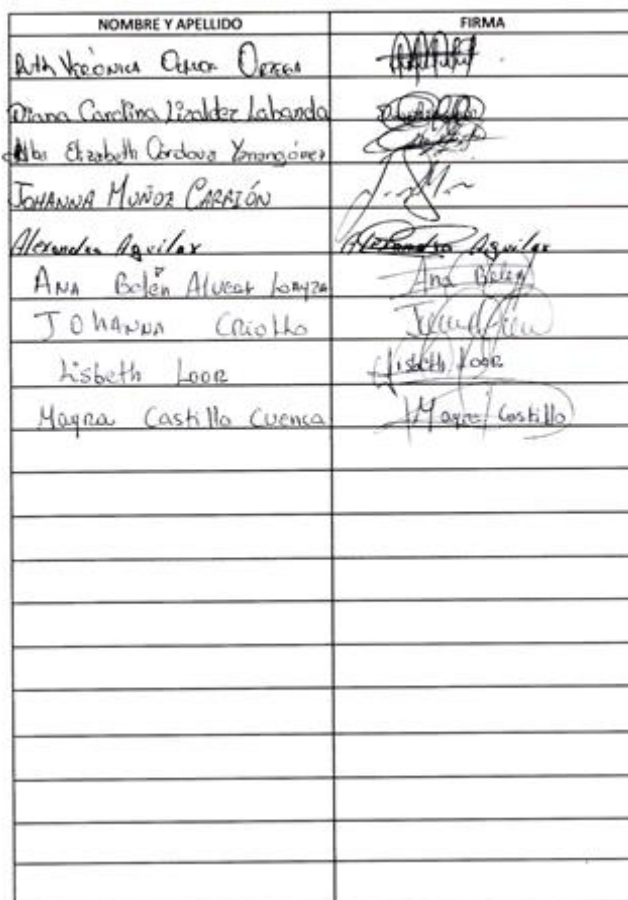 NOMBRE Y APELLIDO FIRMA
Ruth Verónica Ochoa Ortega
Diana Carolina Lizaldez Labanda
Alba Elizabeth Córdova
JOHANNA MUÑOZ CARRIÓN
Alexandra Aguilar Alexandra Aguilar
ANA Belén Alucar Loayza Ana Belén
JOHANNA Criollo
Lisbeth Loor Lisbeth Loor
Mayra Castillo Cuenca Mayra Castillo